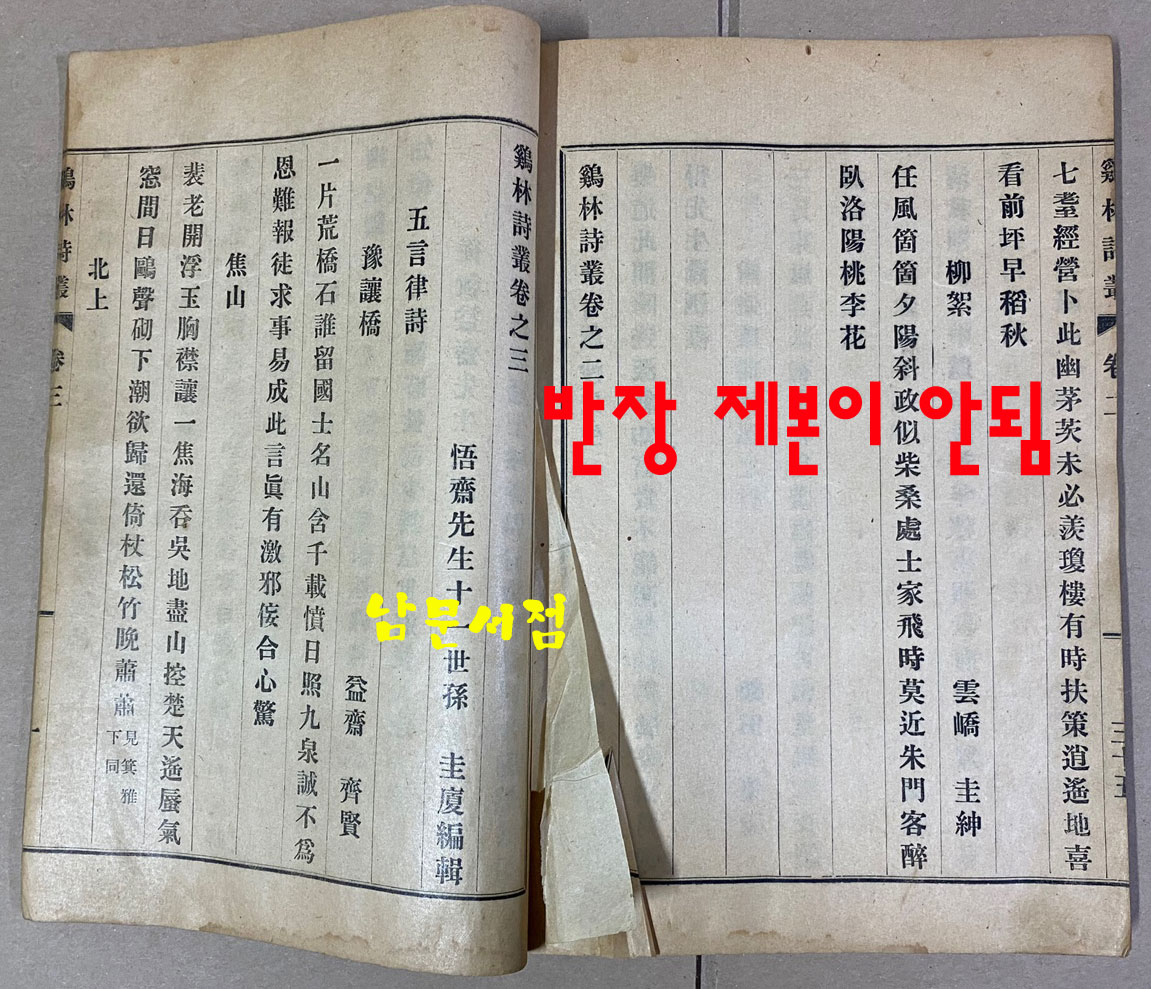 七耋經營卜此幽茅茨未必羨瓊樓有時扶策逍遙地喜
看前坪早稻秋
柳絮 雲嶠 圭紳
任風箇箇夕陽斜政似柴桑處士家飛時莫近朱門客醉
臥洛陽桃李花
鷄林詩叢卷之二
鷄林詩叢 卷二 三十五
반장 제본이 안됨
鷄林詩叢卷之三
悟齋先生十一世孫 圭廈編輯
五言律詩
豫讓橋 益齋 齊賢
一片荒橋石誰留國士名山含千載憤日照九泉誠不爲
恩難報徒求事易成此言眞有激邪侫合心驚
焦山
裴老開浮玉胸襟讓一焦海呑吳地盡山控楚天遙蜃氣
窓間日鷗聲砌下潮欲歸還倚杖松竹晩蕭蕭 見箕雅下同
北上
鷄林詩叢 卷三 一
남문서점